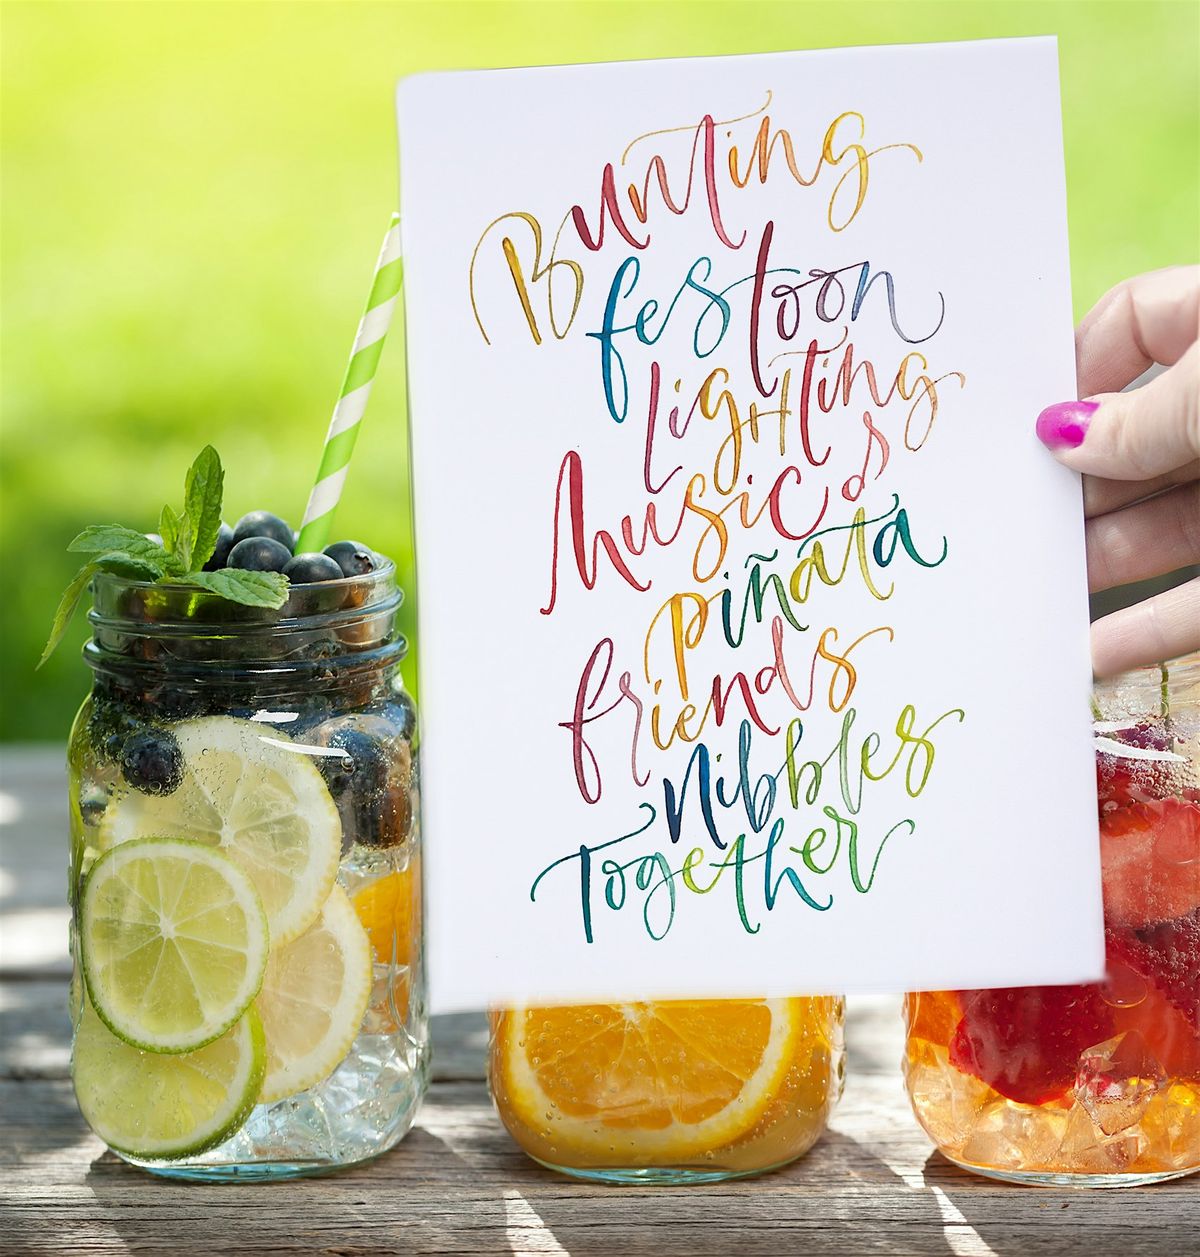 Bunting
festoon
Lighting
music &
piñata
friends
nibbles
Together